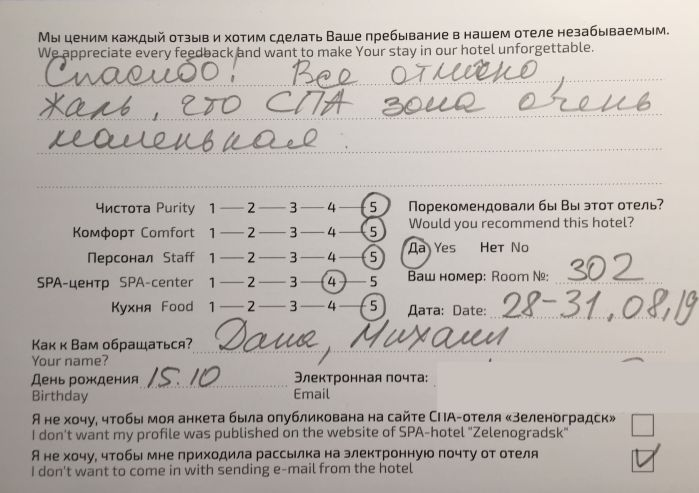 Мы ценим каждый отзыв и хотим сделать Ваше пребывание в нашем отеле незабываемым.
We appreciate every feedback and want to make Your stay in our hotel unforgettable.
Спасибо! Все отлично,
жаль, что СПА зона очень
маленькая.
Чистота Purity 1 — 2 — 3 — 4 — 5
Комфорт Comfort 1 — 2 — 3 — 4 — 5
Персонал Staff 1 — 2 — 3 — 4 — 5
SPA-центр SPA-center 1 — 2 — 3 — 4 — 5
Кухня Food 1 — 2 — 3 — 4 — 5
Порекомендовали бы Вы этот отель?
Would you recommend this hotel?
Да Yes Нет No
Ваш номер: Room №: 302
Дата: Date: 28-31.08.19
Как к Вам обращаться? Дана, Михаил
Your name?
День рождения 15.10
Birthday
Электронная почта:
Email
Я не хочу, чтобы моя анкета была опубликована на сайте СПА-отеля «Зеленоградск»
I don't want my profile was published on the website of SPA-hotel "Zelenogradsk"
Я не хочу, чтобы мне приходила рассылка на электронную почту от отеля
I don't want to come in with sending e-mail from the hotel